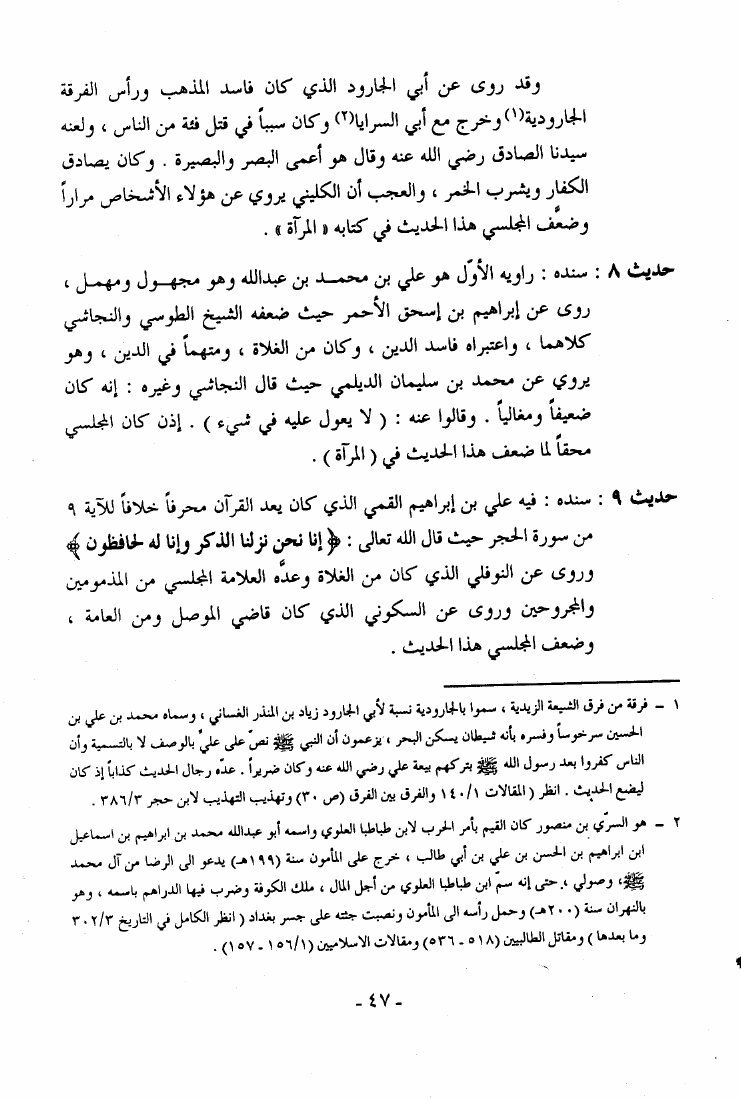 وقد روى عن أبي الجارود الذي كان فاسد المذهب ورأس الفرقة
الجارودية(١) وخرج مع أبي السرايا(٢) وكان سبباً في قتل فئة من الناس ، ولعنه
سيدنا الصادق رضي الله عنه وقال هو أعمى البصر والبصيرة . وكان يصادق
الكفار ويشرب الخمر ، والعجب أن الكليني يروي عن هؤلاء الأشخاص مراراً
وضعَّف المجلسي هذا الحديث في كتابه « المرآة » .
حديث ٨ : سنده : راويه الأوّل هو علي بن محمـد بن عبدالله وهو مجهـول ومهمـل ،
روى عن إبراهيم بن إسحق الأحمر حيث ضعفه الشيخ الطوسي والنجاشي
كلاهما ، واعتبراه فاسد الدين ، وكان من الغلاة ، ومتهماً في الدين ، وهو
يروي عن محمد بن سليمان الديلمي حيث قال النجاشي وغيره : إنه كان
ضعيفاً ومغالياً . وقالوا عنه : ( لا يعول عليه في شيء ) . إذن كان المجلسي
محقاً لما ضعف هذا الحديث في ( المرآة ) .
حديث ٩ : سنده : فيه علي بن إبراهيم القمي الذي كان يعد القرآن محرفاً خلافاً للآية ٩
من سورة الحجر حيث قال الله تعالى : ﴿ إنا نحن نزلنا الذكر وإنا له لحافظون ﴾
وروى عن النوفلي الذي كان من الغلاة وعدَّه العلامة المجلسي من المذمومين
والمجروحين وروى عن السكوني الذي كان قاضي الموصل ومن العامة ،
وضعف المجلسي هذا الحديث .
١ – فرقة من فرق الشيعة الزيدية ، سموا بالجارودية نسبة لأبي الجارود زياد بن المنذر الغساني ، وسماه محمد بن علي بن
الحسين سرخوساً وفسره بأنه شيطان يسكن البحر ، يزعمون أن النبي ﷺ نصّ على عليّ بالوصف لا بالتسمية وأن
الناس كفروا بعد رسول الله ﷺ بتركهم بيعة علي رضي الله عنه وكان ضريراً . عدّه رجال الحديث كذاباً إذ كان
ليضع الحديث . انظر ( المقالات ١٤٠/١ والفرق بين الفرق (ص ٣٠) وتهذيب التهذيب لابن حجر ٣٨٦/٣ .
٢ – هو السريّ بن منصور كان القيم بأمر الحرب لابن طباطبا العلوي واسمه أبو عبدالله محمد بن ابراهيم بن اسماعيل
ابن ابراهيم بن الحسن بن علي بن أبي طالب ، خرج على المأمون سنة (١٩٩هـ) يدعو الى الرضا من آل محمد
ﷺ، وصولي ، حتى إنه سمّ ابن طباطبا العلوي من أجل المال ، ملك الكوفة وضرب فيها الدراهم باسمه ، وهو
بالنهران سنة (٢٠٠هـ) وحمل رأسه الى المأمون ونصبت جثته على جسر بغداد ( انظر الكامل في التاريخ ٣٠٢/٣
وما بعدها ) ومقاتل الطالبيين (٥١٨ - ٥٣٦) ومقالات الاسلاميين (١٥٦/١ - ١٥٧) .
- ٤٧ -